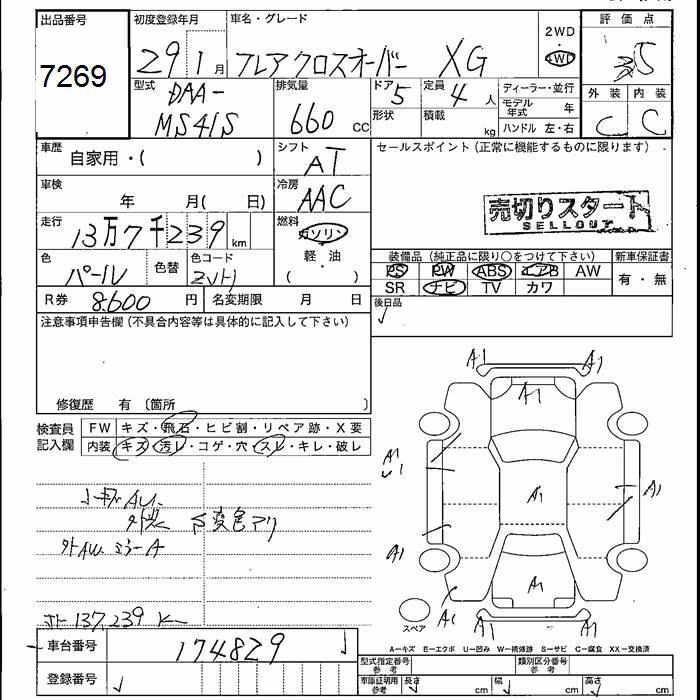 出品番号
7269
初度登録年月
29 1月
車名・グレード
フレアクロスオーバー XG
2WD
・
4WD
評価点
3.5
外装 内装
C C
型式
DAA-
MS41S
排気量
660 CC
ドア
5
定員
4人
形状
積載
kg
ディーラー・並行
モデル年式 年
ハンドル 左・右
車歴
自家用・( )
シフト
AT
セールスポイント(正常に機能するものに限ります)
車検
年 月( 日)
冷房
AAC
売切りスタート
SELLOUT
走行
13万7千239km
燃料
ガソリン
・
軽・油
( )
色
パール
色替
色コード
ZVH
装備品(純正品に限り○をつけて下さい)
新車保証書
PS PW ABS エアB AW
有・無
SR ナビ TV カワ
R券 8600円
名変期限 月 日
後日品
注意事項申告欄(不具合内容等は具体的に記入して下さい)
修復歴 有〔箇所 〕
検査員
記入欄
FW キズ・飛石・ヒビ割・リペア跡・X要
内装 キズ・汚レ・コゲ・穴・スレ・キレ・破レ
A1 A1
A1
A1
A1
A1
A1
A1
A1 A1
変色アリ
外AW ミラーA
137,239
スペア
車台番号
174829
登録番号
A−キズ E−エクボ U−凹み W−補修跡 S−サビ C−腐食 XX−交換済
型式指定番号
参考
類別区分番号
参考
車庫証明用
参考
長さ cm
幅 cm
高さ cm